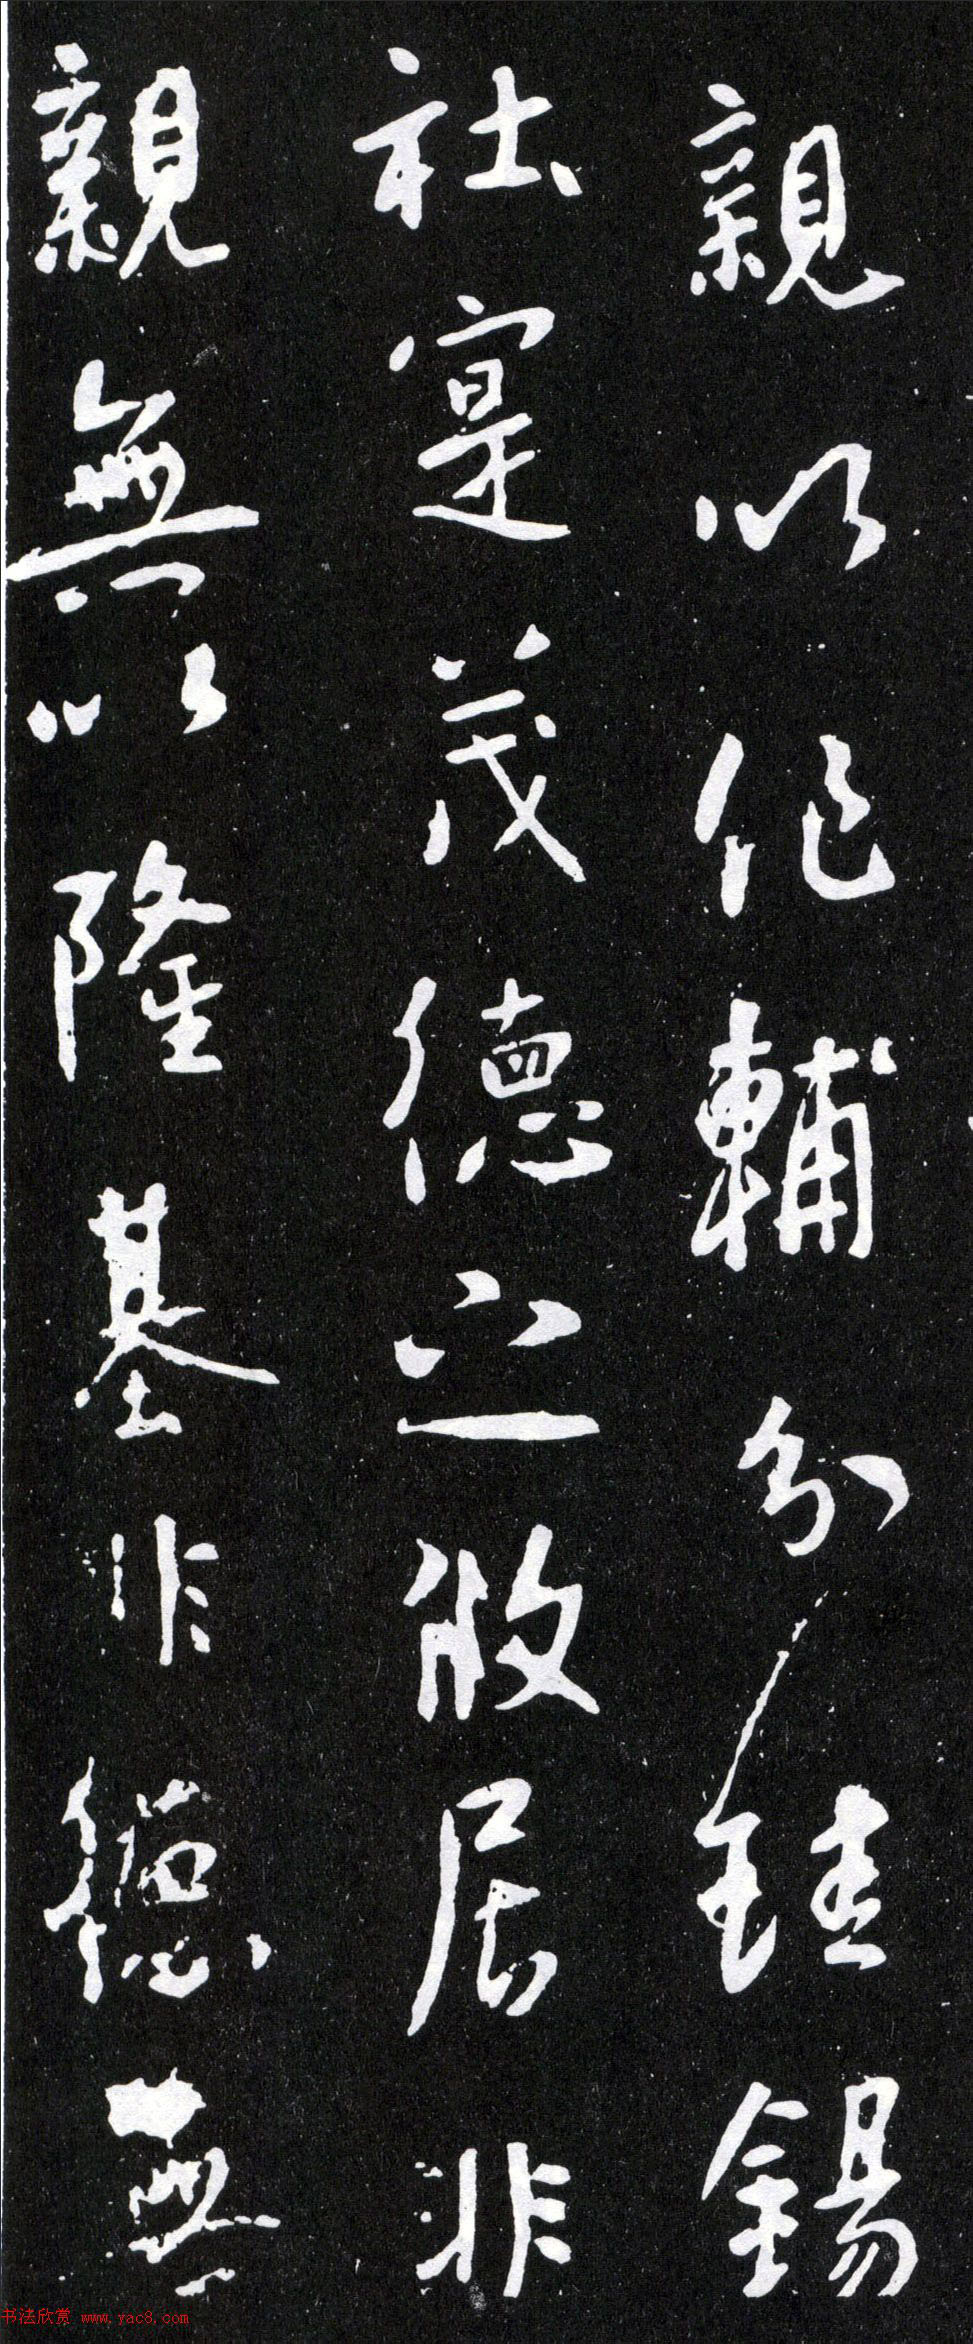 親以作輔分珪錫
社寔茂德之攸居非
親無以隆基非德無
书法欣赏 www.yac8.com